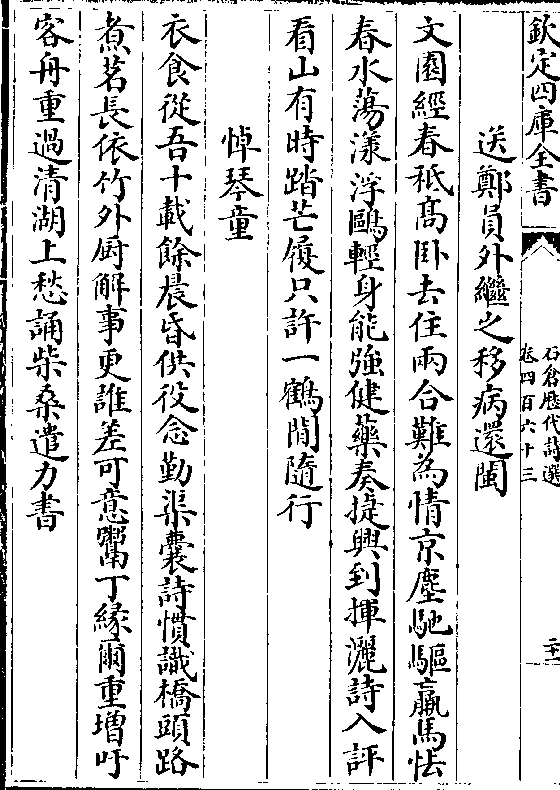 欽定四庫全書
石倉歴代詩選
卷四百六十三
送鄭員外繼之移病還閩
文園經春秪高臥去住兩合難為情京塵馳驅羸馬怯
春水蕩漾浮鷗輕身能強健藥奏捷興到揮灑詩入評
看山有時踏芒履只許一鶴閒隨行
悼琴童
衣食從吾十載餘晨昏供役念勤渠囊詩慣識橋頭路
煮茗長依竹外厨解事更誰差可意鬻丁緣爾重增吁
客舟重過清湖上愁誦柴桑遣力書